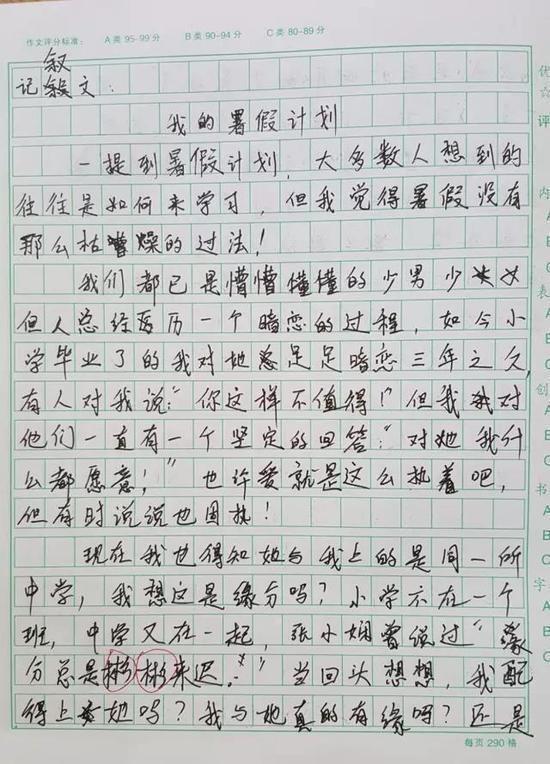 作文评分标准： A类 95-99分 B类 90-94分 C类 80-89分
叙
记文：
我的暑假计划
一提到暑假计划，大多数人想到的
往往是如何来学习，但我觉得暑假没有
那么枯燥的过法！
我们都已是懵懵懂懂的少男少女
但人总经历一个暗恋的过程，如今小
学毕业了的我对她足足暗恋三年之久，
有人对我说：“你这样不值得！”但我对
他们一直有一个坚定的回答：“对她我什
么都愿意！”也许爱就是这么执着吧，
但有时说说也固执！
现在我也得知她与我上的是同一所
中学，我想这是缘分吗？小学不在一个
班，中学又在一起，张小娴曾说过“缘
分总是彬彬来迟。”当回头想想，我配
得上她吗？我与她真的有缘吗？还是
每页 290 格
优
☆
评
内
A
B
C
表
A
B
C
创
A
B
C
书
A
B
字
A
B
C